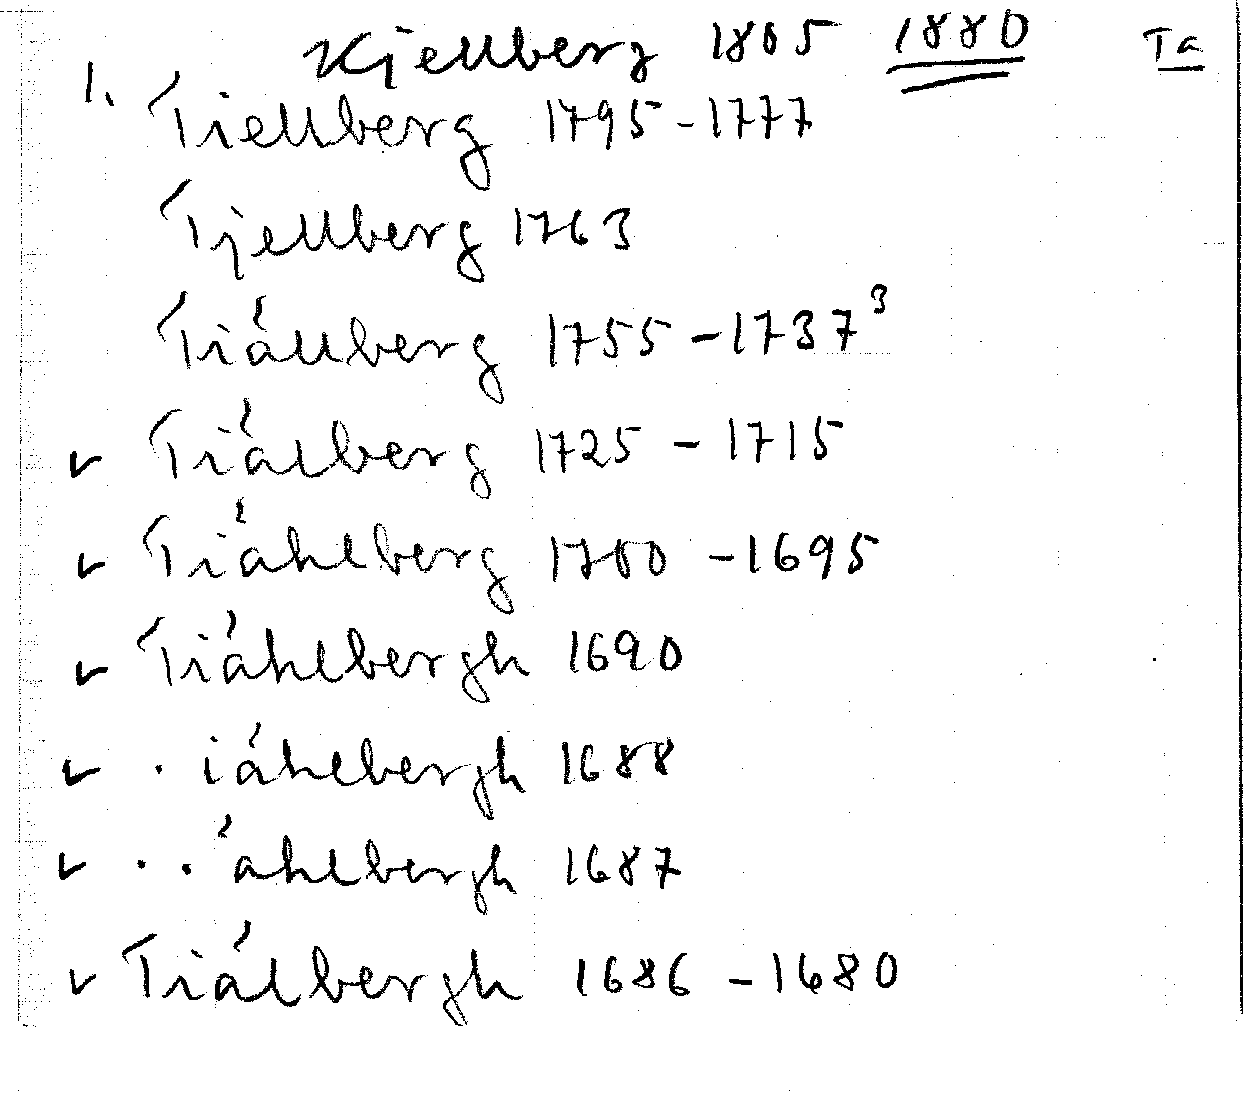 Kjellberg 1805 1880 Ta
1. Tiellberg 1795-1777
Tjellberg 1763
Tiállberg 1755-1737³
✓ Tiálberg 1725-1715
✓ Tiáhlberg 1700-1695
✓ Tiáhlbergh 1690
✓ . iáhlbergh 1688
✓ . . áhlbergh 1687
✓ Tiálbergh 1686-1680